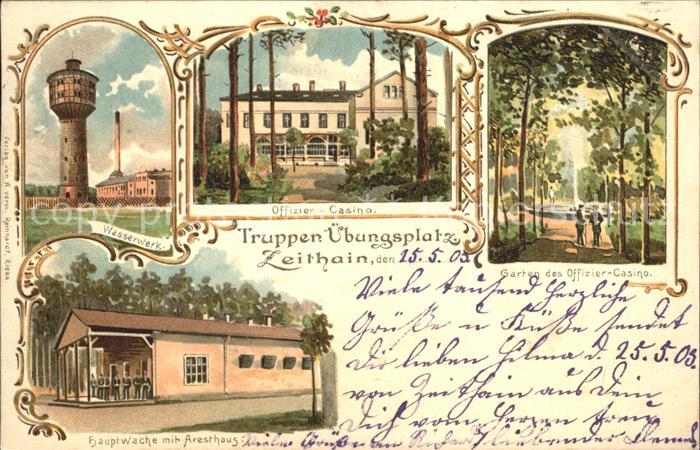 Wasserwerk.
Offizier - Casino.
Garten des Offizier-Casino.
Verlag von A. verw. Reinhardt, Riesa
Truppen Übungsplatz
Zeithain, den 15.5.05
Viele tausend herzliche
Grüße u Küße sendet
Dir lieben Helma d. 25.5.05
von Zeithain aus Dein
Dich vom Herzen treu
liebender
Hauptwache mit Aresthaus
Viele Grüße an